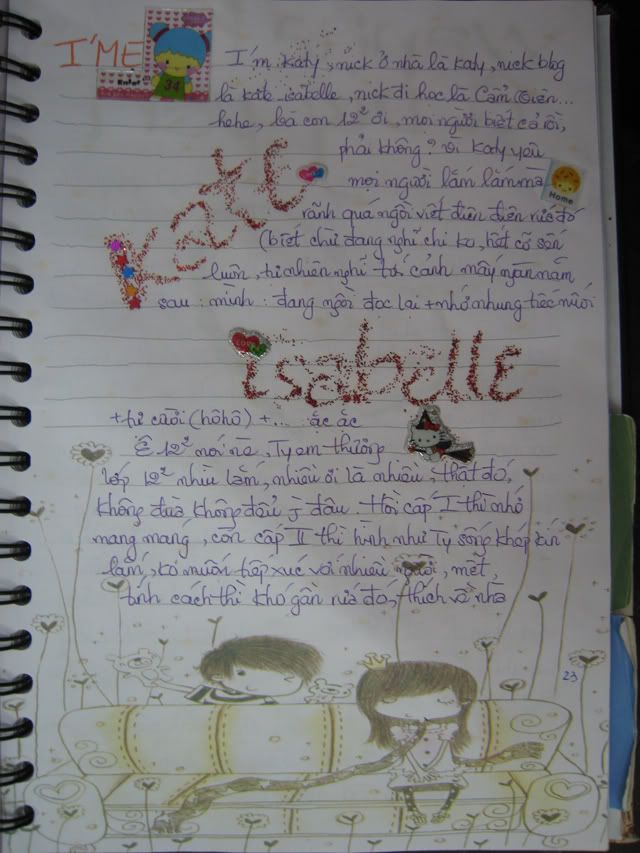 I'ME
34
I'm Katy, nick ở nhà là Katy, nick blog
là kate_isabelle, nick đi học là Cẩm Quiên...
hehe, bà con 12² ơi, mọi người biết cả rồi,
phải không? Vì Katy yêu
mọi người lắm lắm mà
Home
Kate
rãnh quá ngồi viết điên điên rứa đó
(biết chừ đang nghĩ chi ko, hết cỡ sến
luôn, tự nhiên nghĩ tới cảnh mấy ngàn năm
sau: mình: đang ngồi đọc lại + nhớ nhung tiếc nuối
isabelle
+ tự cười (hôhô) + ... ặc ặc
Ê 12² nói nè, Ty em thương
lớp 12² nhìu lắm, nhiều ơi là nhiều, thật đó,
không đùa không đểu j đâu. Hồi cấp I thì nhớ
mang máng, còn cấp II thì hình như Ty sống khép kín
lắm, ko muốn tiếp xúc với nhiều người, mệt,
tính cách thì khó gần rứa đó, thích về nhà
23